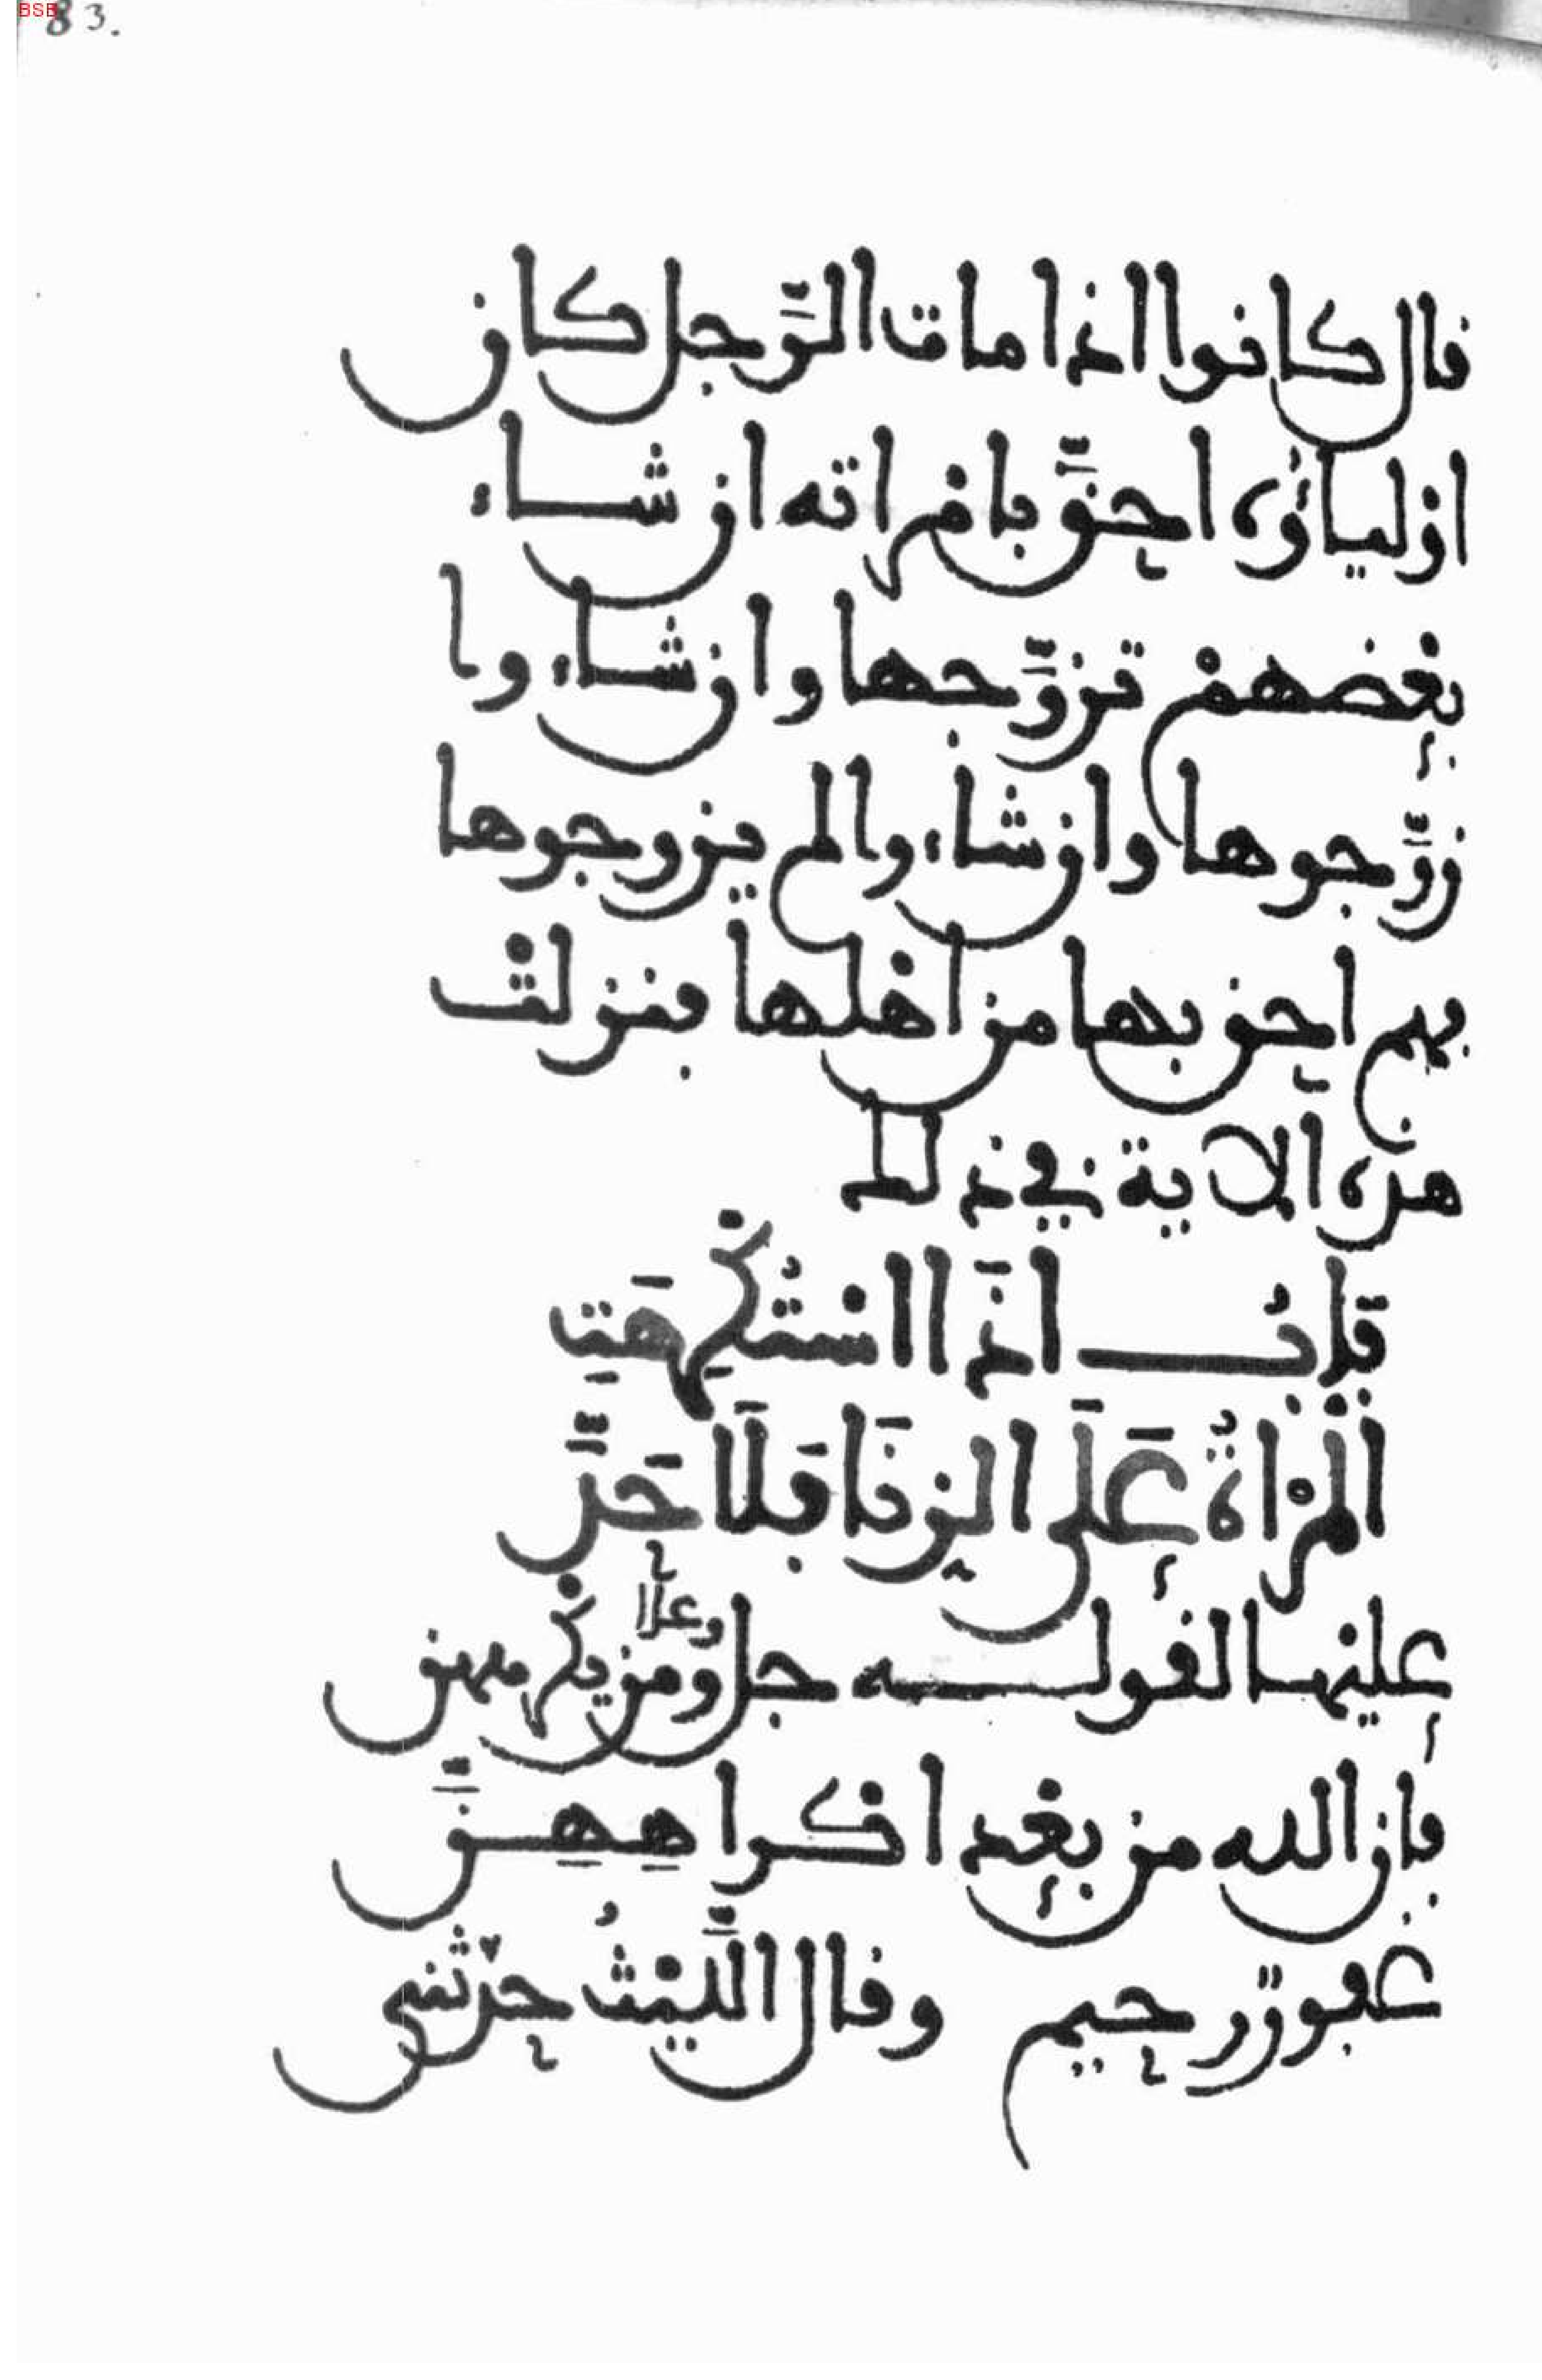 BSB
83.
قال كانوا اذا مات الرَّجل كان
اوْلياؤُه احقَّ بامْراته ان شاء
بعْضهمْ تزوَّجها وان شاء وا
زوَّجوها وان شاء والم يزوجوها
فهم احق بها من اهْلها فنزلتْ
هذه الاية في ذلك
بَابُ اذَا اسْتُكْرِهَتِ
الْمرْاةُ عَلَى الزِنَا فَلَا حَدَّ
عليْها لقوله جل وعلا ومن يكْرههن
فان الله من بعْد اكراهِهِنَّ
غفورٌ رحيم وقال اللَّيْثُ حدّثني